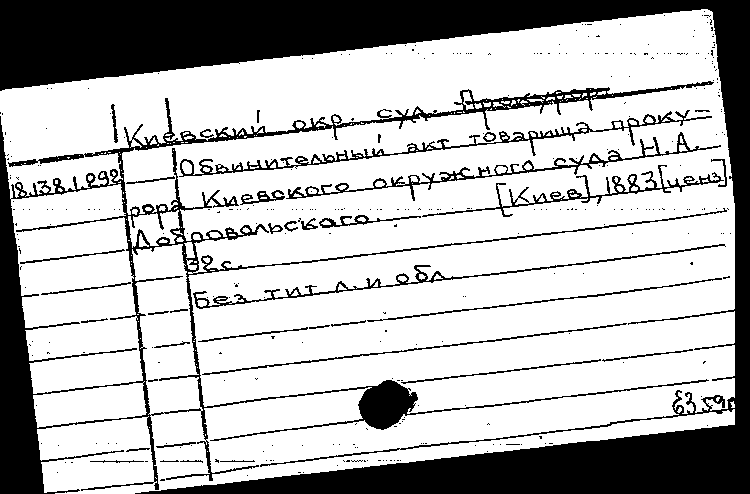 Киевский окр. суд. Прокурор
18.138.1.292
Обвинительный акт товарища проку-
рора Киевского окружного суда Н.А.
Добровольского. [Киев], 1883 [ценз].
32 с.
Без тит. л. и обл.